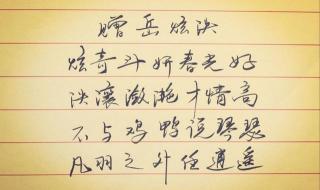 赠岳炫泱
炫奇斗妍春光好
泱瀼潋滟才情高
不与鸡鸭说琴瑟
凡羽之外任逍遥